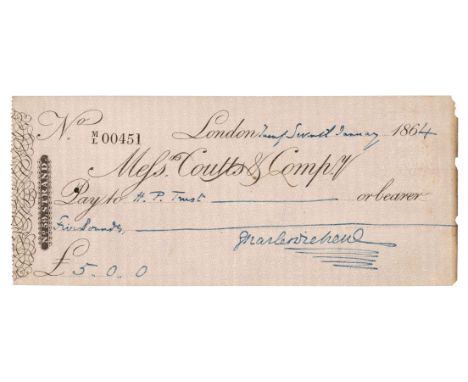 No. M/L 00451 London Twenty Seventh January 1864
Messrs. Coutts & Compy.
Pay to H. P. Trust or bearer
Five Pounds,
Charles Dickens
£ 5.0.0
No. 59, STRAND.